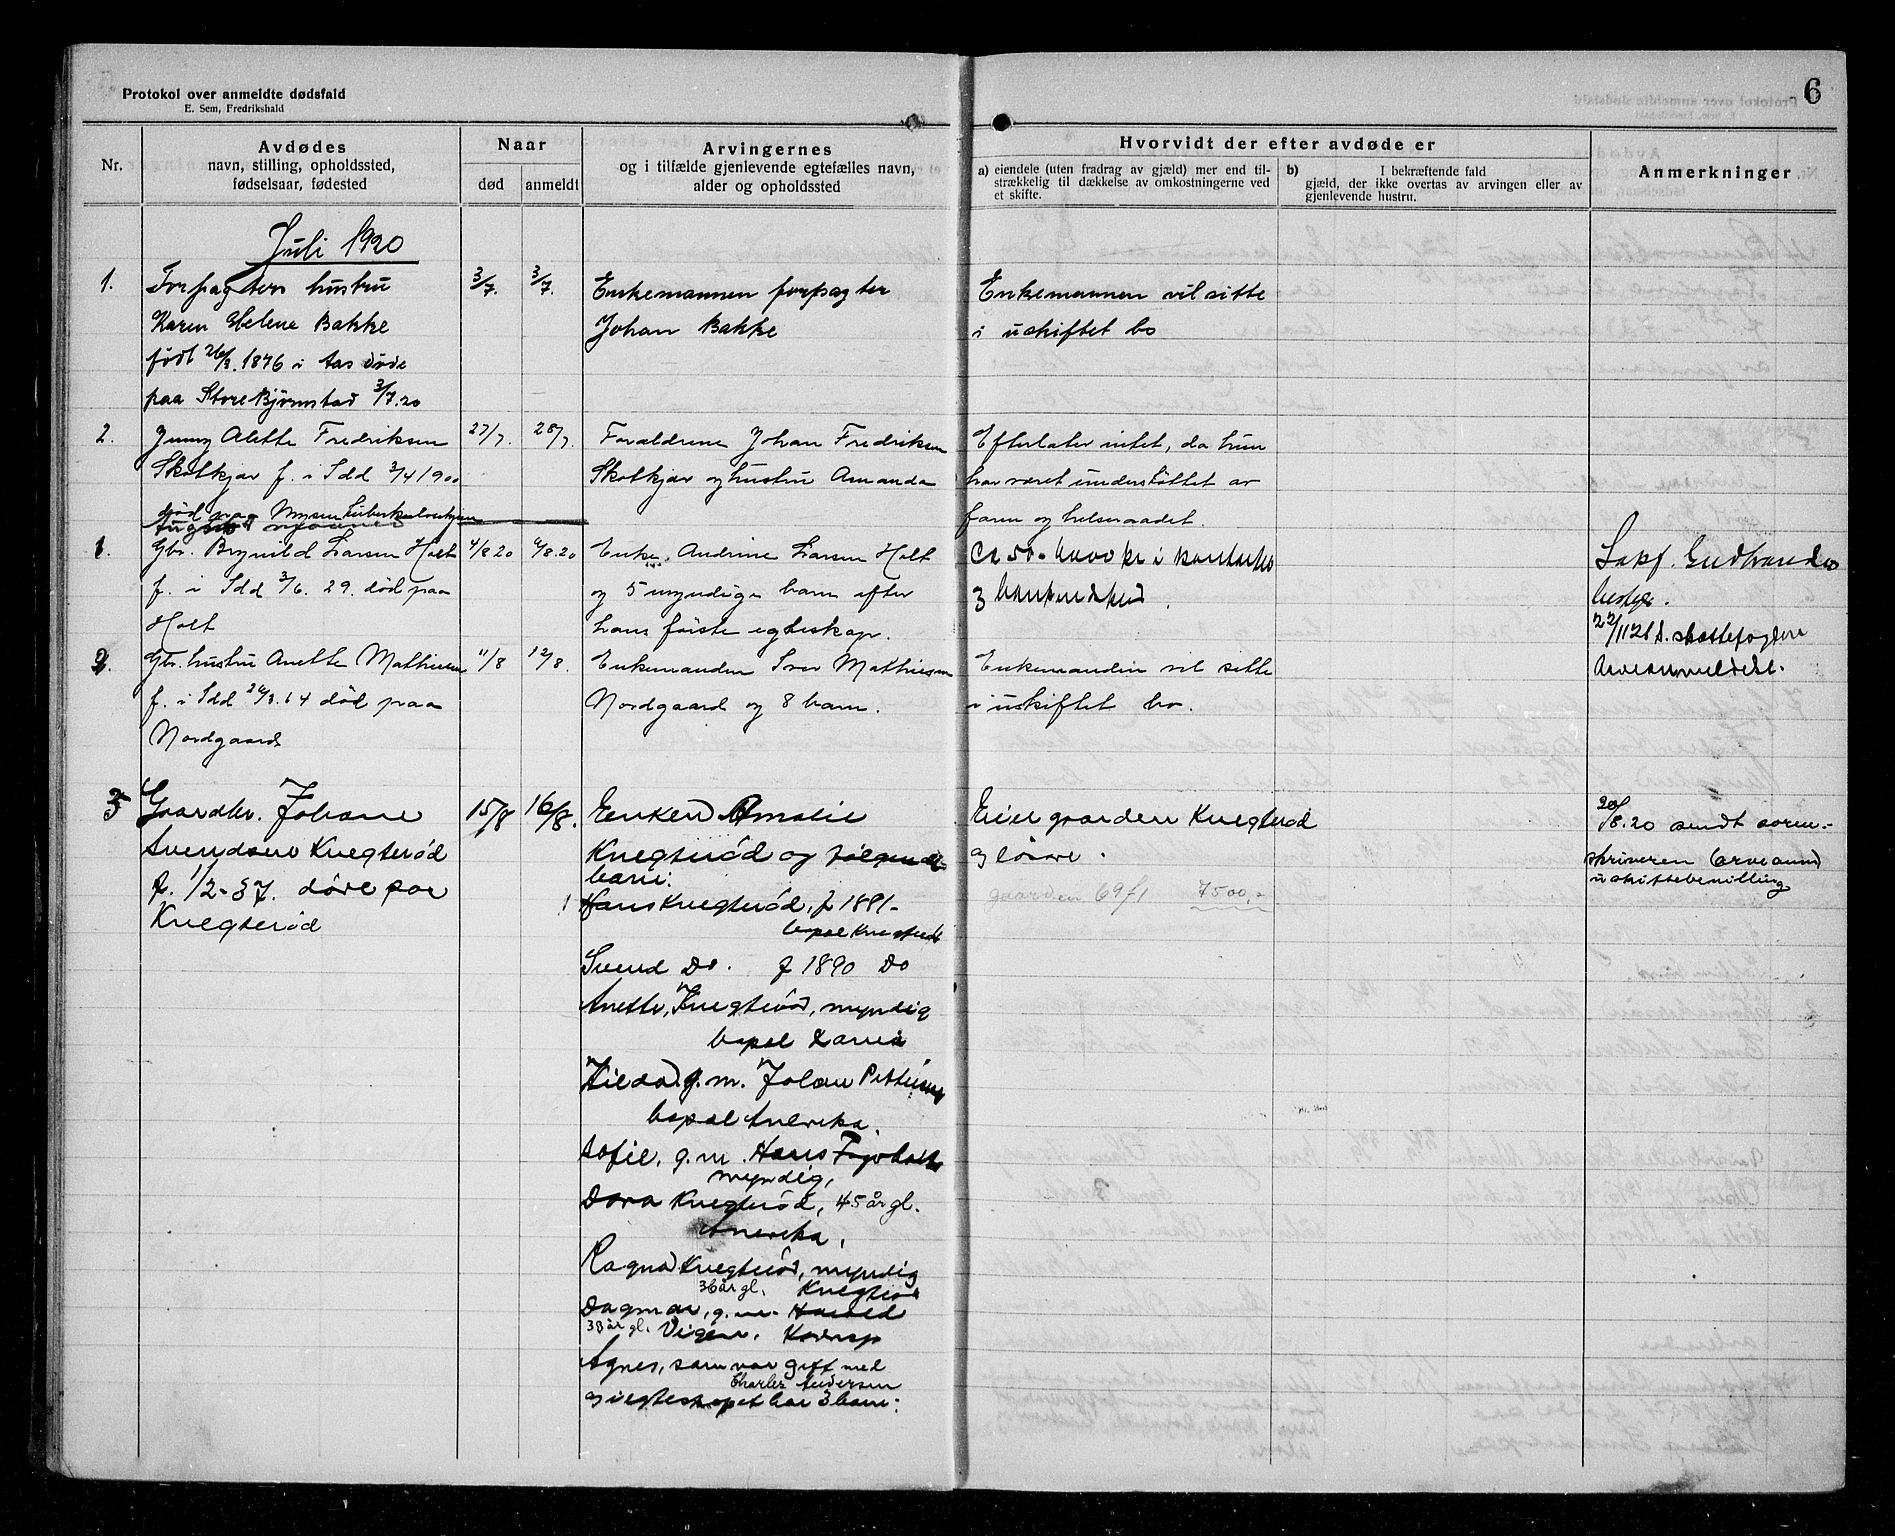 Protokol over anmeldte dødsfald
E. Sem, Fredrikshald
6
Nr.
Avdødes
navn, stilling, opholdssted,
fødselsaar, fødested
Naar
død
anmeldt
Arvingernes
og i tilfælde gjenlevende egtefælles navn,
alder og opholdssted
Hvorvidt der efter avdøde er
a) eiendele (uten fradrag av gjæld) mer end til-
strækkelig til dækkelse av omkostningerne ved
et skifte.
b) I bekræftende fald
gjæld, der ikke overtas av arvingen eller av
gjenlevende hustru.
Anmerkninger.
Juli 1920
1.
Forpagters hustru
Karen Helene Bakke
født 26/3. 1876 i Aas døde
paa Store Bjørnstad 3/7.20
3/7.
3/7.
Enkemannen forpagter
Johan Bakke
Enkemannen vil sitte
i uskiftet bo
2.
Jenny Alette Fredriksen
Skolkjær f. i Idd 3/4 1900
død paa Mysen
27/7.
28/7
Forældrene Johan Fredriksen
Skolkjær og hustru Amanda
Efterlater intet, da hun
har været understøttet av
faren og helseraadet.
August
1.
Gbr. Brynild Larsen Holt
f. i Idd 3/6. 29. død paa
Holt
4/8 20
6/8.20
Enke Andrine Larsen Holt
og 5 myndige barn efter
hans første egteskap.
Ca 50-6000 kr i kontanter
3
22/11 21
2.
Gbr. hustru Anette Mathisen
f. i Idd 26/3. 64 død paa
Nordgaard
11/8
12/8.
Enkemanden Iver Mathisen
Nordgaard og 8 barn.
Enkemanden vil sitte
i uskiftet bo.
3
Gaardbr. Johan
Svendsen Knegterød
f. 1/2-37. døde paa
Knegterød
15/8
16/8.
Enken Amalie
Knegterød og følgende
barn:
1 Hans Knegterød, f 1881-
bopæl Knegterød
Svend Do. f 1890 Do
Anette, Knegterød, myndig
bopæl
Hilda g. m. Johan Pettersen
bopæl Amerika.
Sofie, g. m. Hans
myndig,
Dora Knegterød, 45 år gl.
Amerika.
Ragna Knegterød, myndig
36 år gl. Knegterød
Dagmar, g. m. Harald
38 år gl.
Agnes, som var gift med
Charles Andersen
og i egteskapet har 3 barn.
Eier gaarden Knegterød
og løsøre.
gaarden 69/1 7500,-
20/8.20 sendt soren-
skriveren (arveanm)
uskiftebevilling